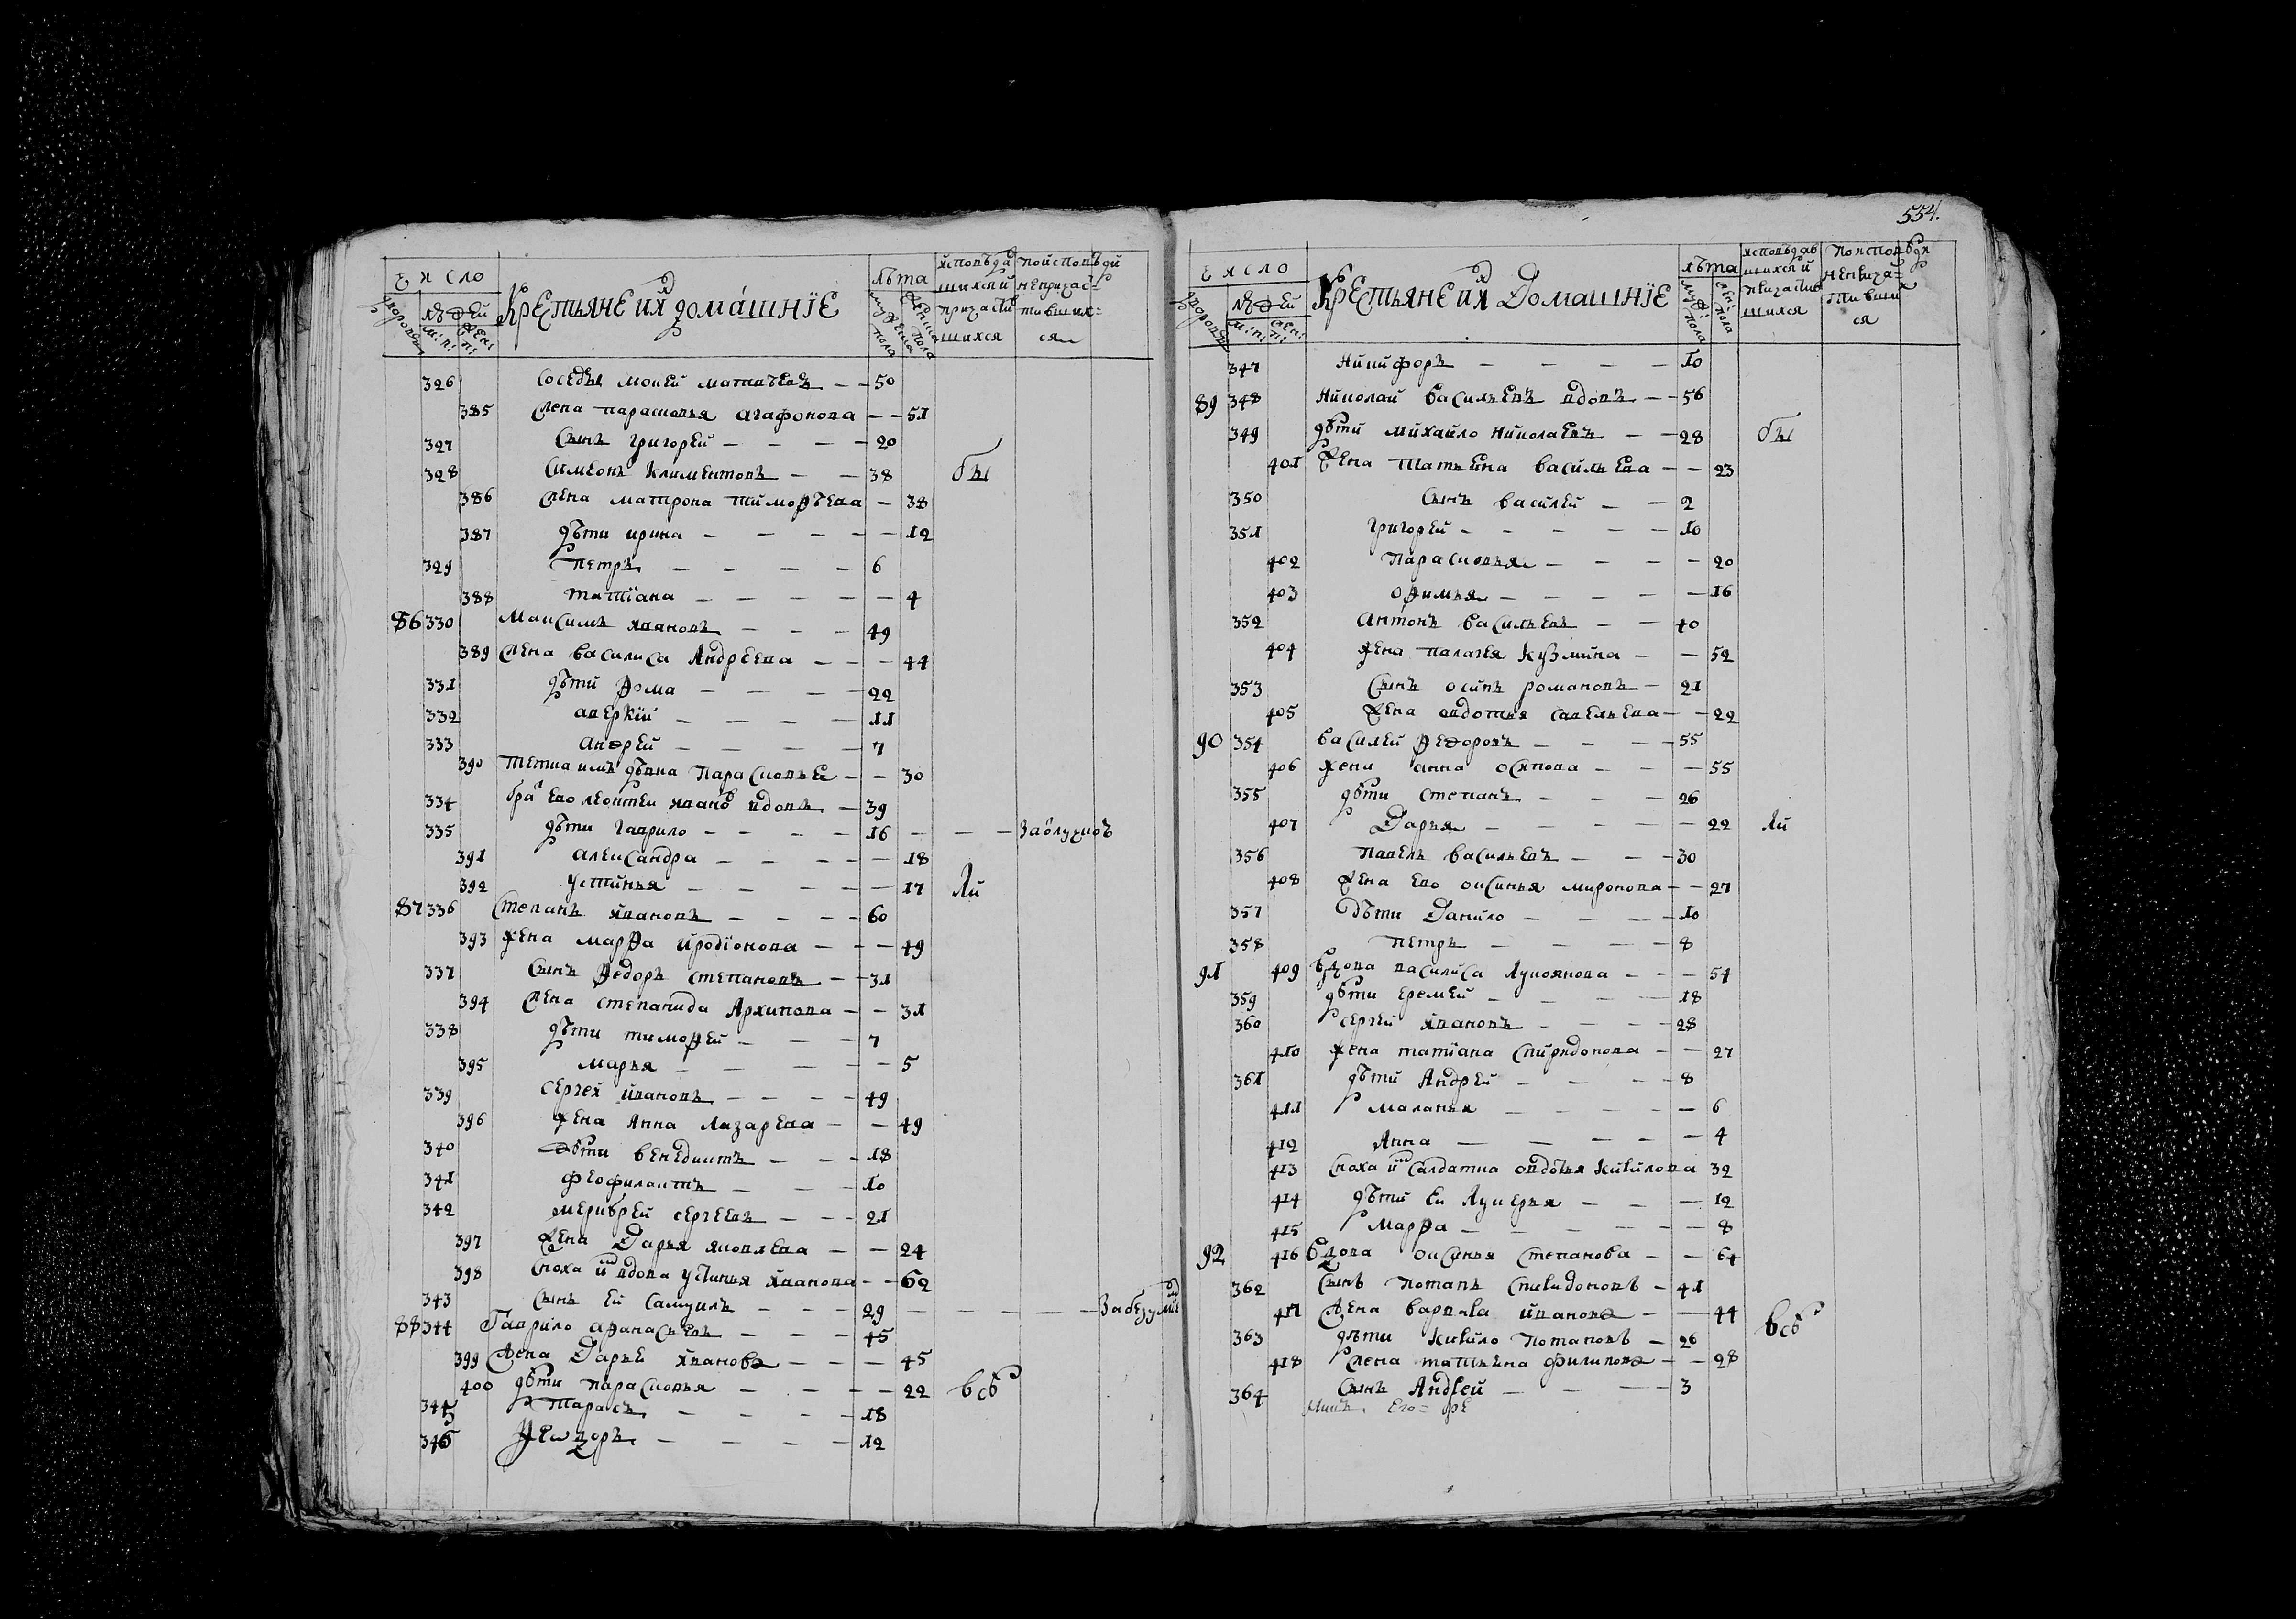 554.
Число
Крестьяне и их домашніе
лѣта
исповѣдав
шихся и
причасти
вшихся
по исповѣди
не причас-
тивших-
ся
дворовъ
людей
м: п:
жен: п:
мужеска пола
женска пола
326 соседъ моисей матвѣевъ — — 50
385 жена парасковья агафонова — — 51
327 сынъ григорей — — — — 20
328 симеонъ климентовъ — — 38 бы
386 жена матрона тимофѣева — 38
387 дѣти ирина — — — — — 12
329 петръ — — — — 6
388 татіана — — — — — 4
86 330 Максимъ ивановъ — — — 49
389 жена василиса Андреева — — — 44
331 дѣти фома — — — — 22
332 аверкій — — — — 11
333 андрей — — — — 7
390 парасковьѣ — — 30
334 бра ево леонтеи ивано вдовъ — 39
335 дѣти гаврило — — — — 16 — — — за отлучкою
391 александра — — — — — 18
392 устинья — — — — — 17 ли
87 336 Степанъ ивановъ — — — — 60
393 жена марфа иродіонова — — — 49
337 сынъ федоръ степановъ — — 31
394 жена степанида Архипова — — 31
338 дѣти тимофей — — — 7
395 марья — — — — — 5
339 сергей ивановъ — — — — 49
396 жена Анна лазарева — — 49
340 дѣти венедиктъ — — — 18
341 феофилактъ — — — 10
342 меркурей сергеевъ — — — 21
397 жена Дарья яковлева — — 24
398 сноха и вдова устинья иванова — — 62
343 сынъ еи самуилъ — — — 29 — — — — за безумие
88 344 Гаврило афанасьевъ — — — 45
399 жена Дарьѣ иванова — — — 45
400 дѣти парасковья — — — — 22 всѣ
345 тарасъ — — — — 18
346 Феѡдоръ — — — — 12
Число
Крестьяне и их Домашніе
лѣта
исповѣдав
шихся и
причастив
шихся
по исповѣди
не прича-
стивших
ся
дворовъ
людей
м: п:
жен: п:
муж: пола
жен: пола
347 никифоръ — — — — 10
89 348 николай васильевъ вдовъ — — 56
349 дѣти михайло николаевъ — — 28 бы
401 жена татьяна васильева — — 23
350 сынъ василей — — 2
351 григорей — — — — — 10
402 парасковья — — — — 20
403 офимья — — — — — 16
352 антонъ васильевъ — — 40
404 жена палагея кузмина — — 52
353 сынъ осипъ романовъ — 21
405 жена овдотья савельева — — 22
90 354 василей федоровъ — — — — 55
406 жена анна осипова — — — 55
355 дѣти степанъ — — — 26
407 Дарья — — — — — 22 ли
356 павелъ васильевъ — — — 30
408 жена ево оксинья миронова — — 27
357 дѣти Данило — — — — 10
358 петръ — — — — 8
91 409 вдова василиса лукоянова — — — 54
359 дѣти еремей — — — — 18
360 сергеи ивановъ — — — — 28
410 жена татіана спиридонова — — 27
361 дѣти Андрей — — — — 8
411 маланья — — — — — 6
412 Анна — — — — — 4
413 сноха и салдатка овдотья кирилова 32
414 дѣти еи лукерья — — — 12
415 марфа — — — — — 8
92 416 вдова оксинья степанова — — 64
362 сынъ потапъ спиридоновъ — 41
417 жена варвара иванова — — 44 всѣ
363 дѣти кирило потаповъ — 26
418 жена татьяна филипова — — 28
364 сынъ Андрей — — — — 3